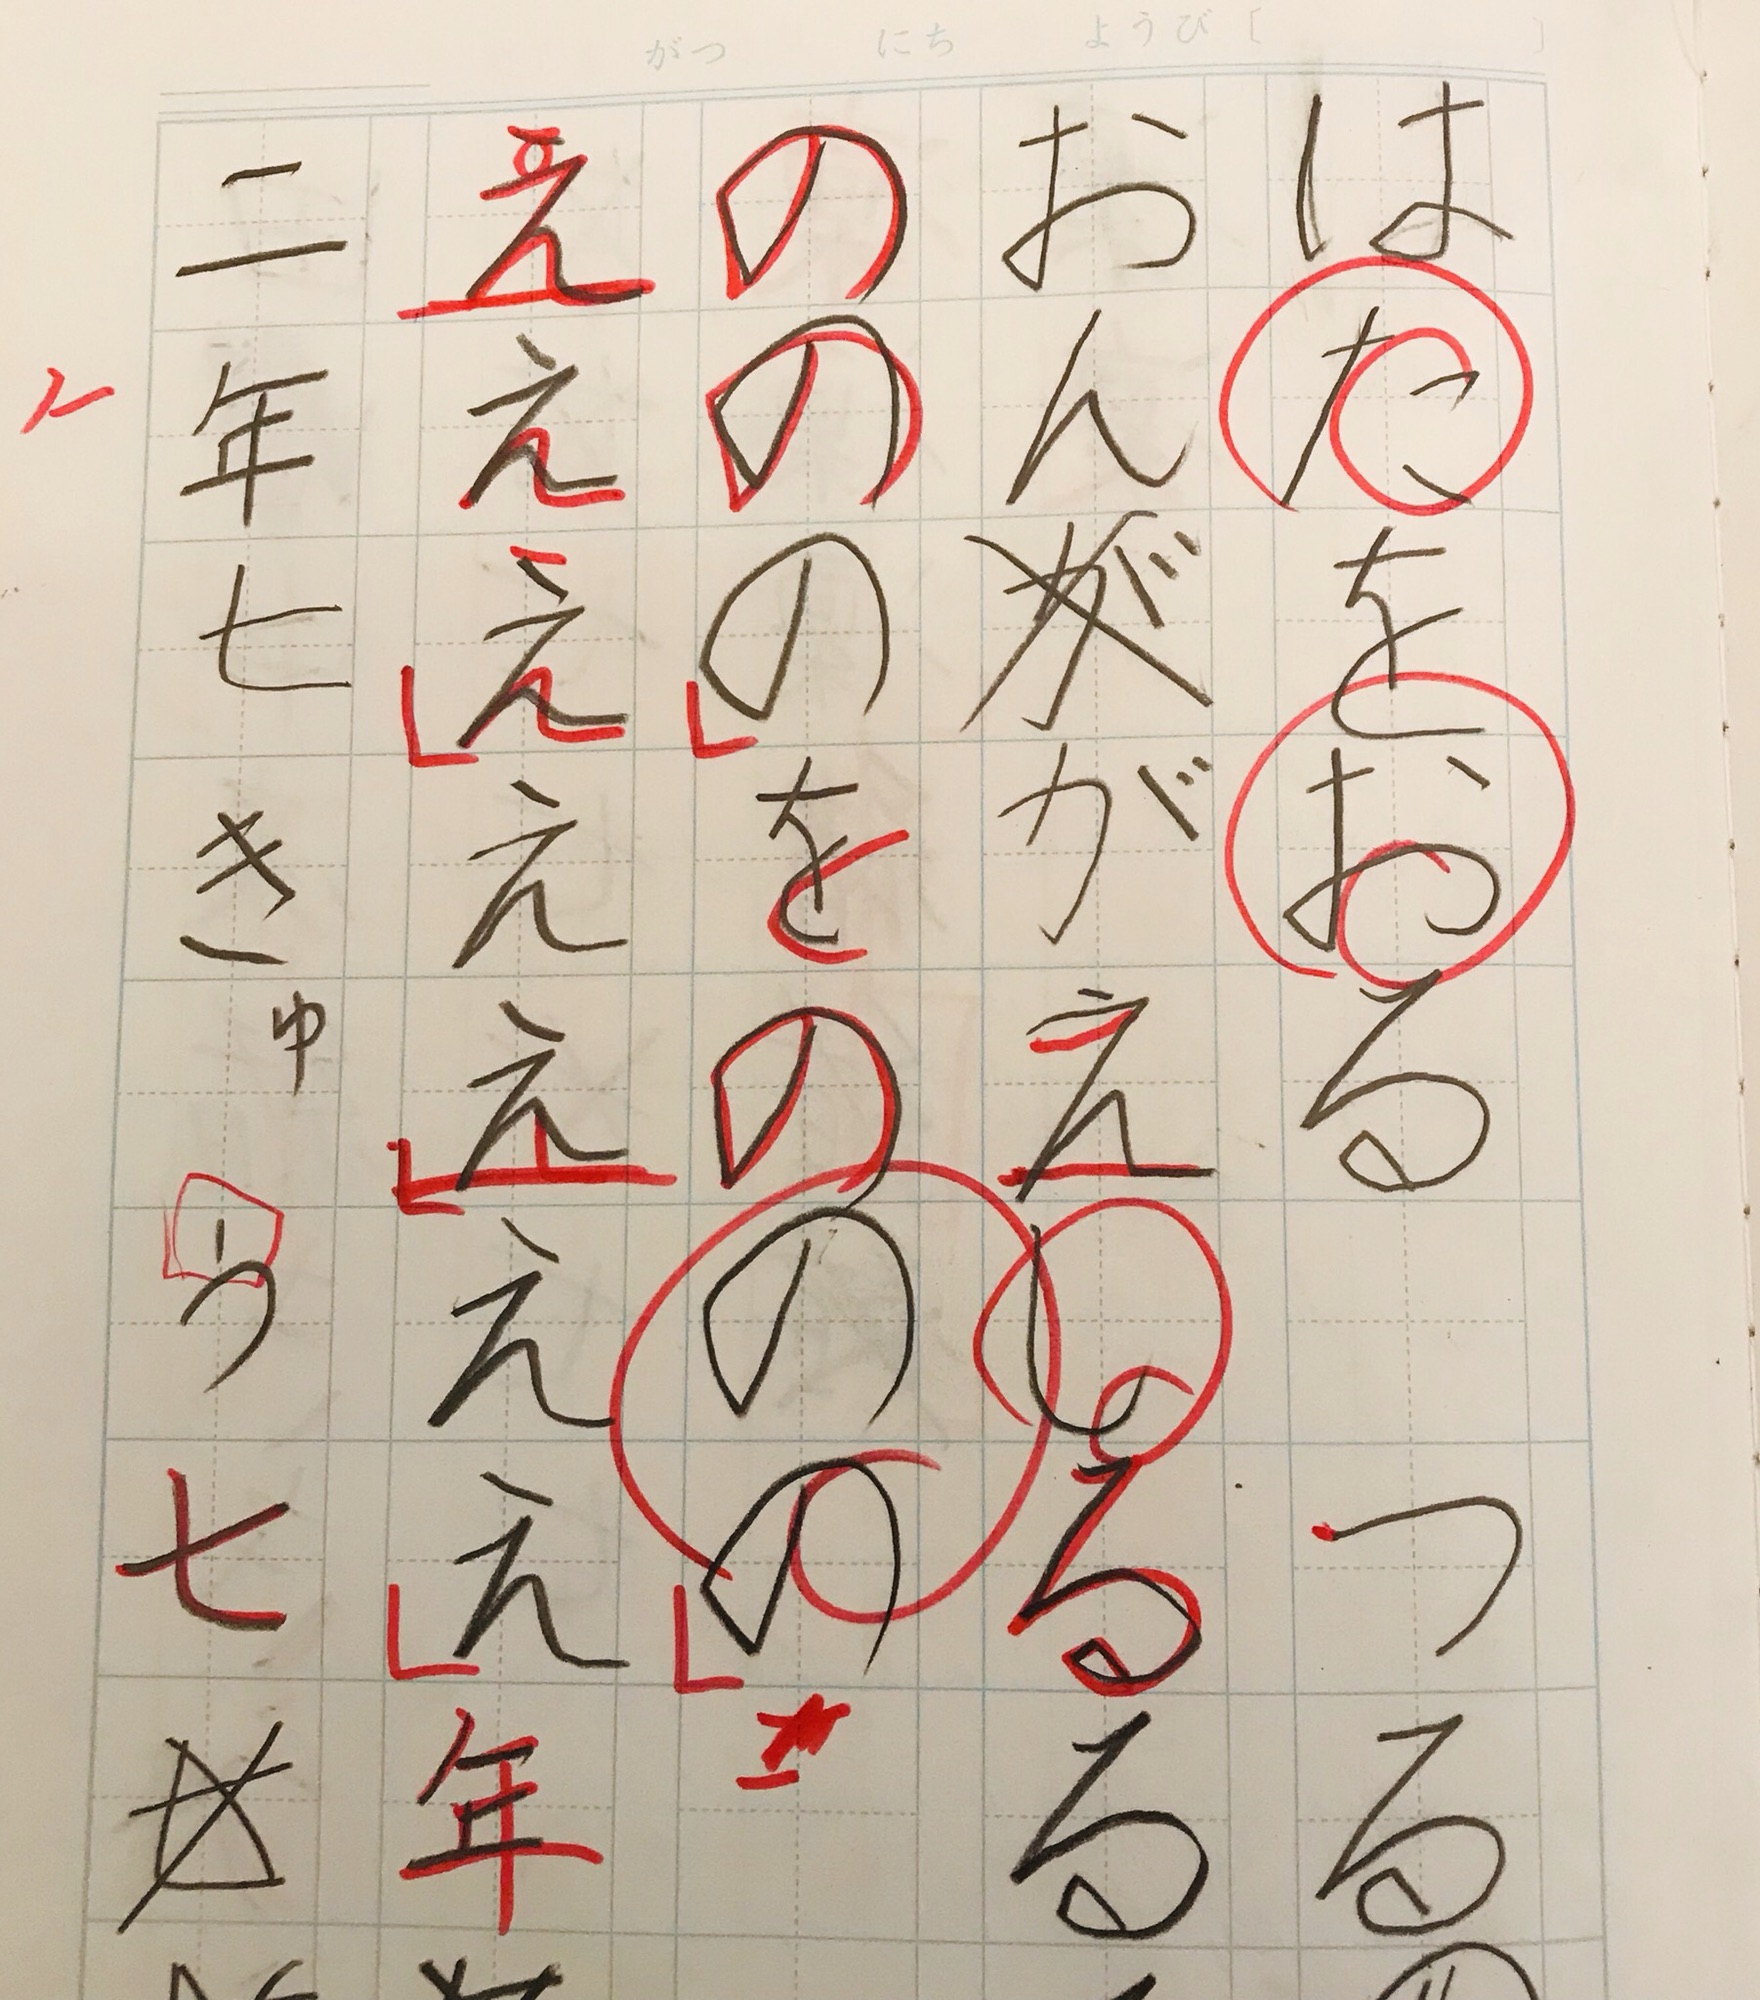 がつ にち ようび
はたをおる つる
おんがえし るる
のののをののの
ええええええ え年
二年七きゅう七